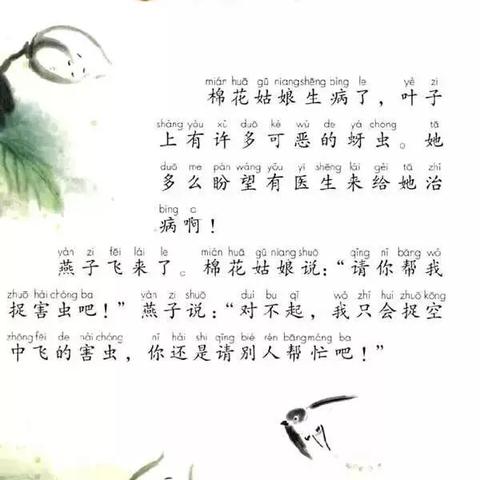 mián huā gū niang shēng bìng le yè zi
棉花姑娘生病了，叶子
shàng yǒu xǔ duō kě wù de yá chóng tā
上有许多可恶的蚜虫。她
duō me pàn wàng yǒu yī shēng lái gěi tā zhì
多么盼望有医生来给她治
bìng a
病啊！
yàn zi fēi lái le mián huā gū niang shuō qǐng nǐ bāng wǒ
燕子飞来了。棉花姑娘说：“请你帮我
zhuō hài chóng ba yàn zi shuō duì bu qǐ wǒ zhǐ huì zhuō kōng
捉害虫吧！”燕子说：“对不起，我只会捉空
zhōng fēi de hài chóng nǐ hái shi qǐng bié rén bāng máng ba
中飞的害虫，你还是请别人帮忙吧！”